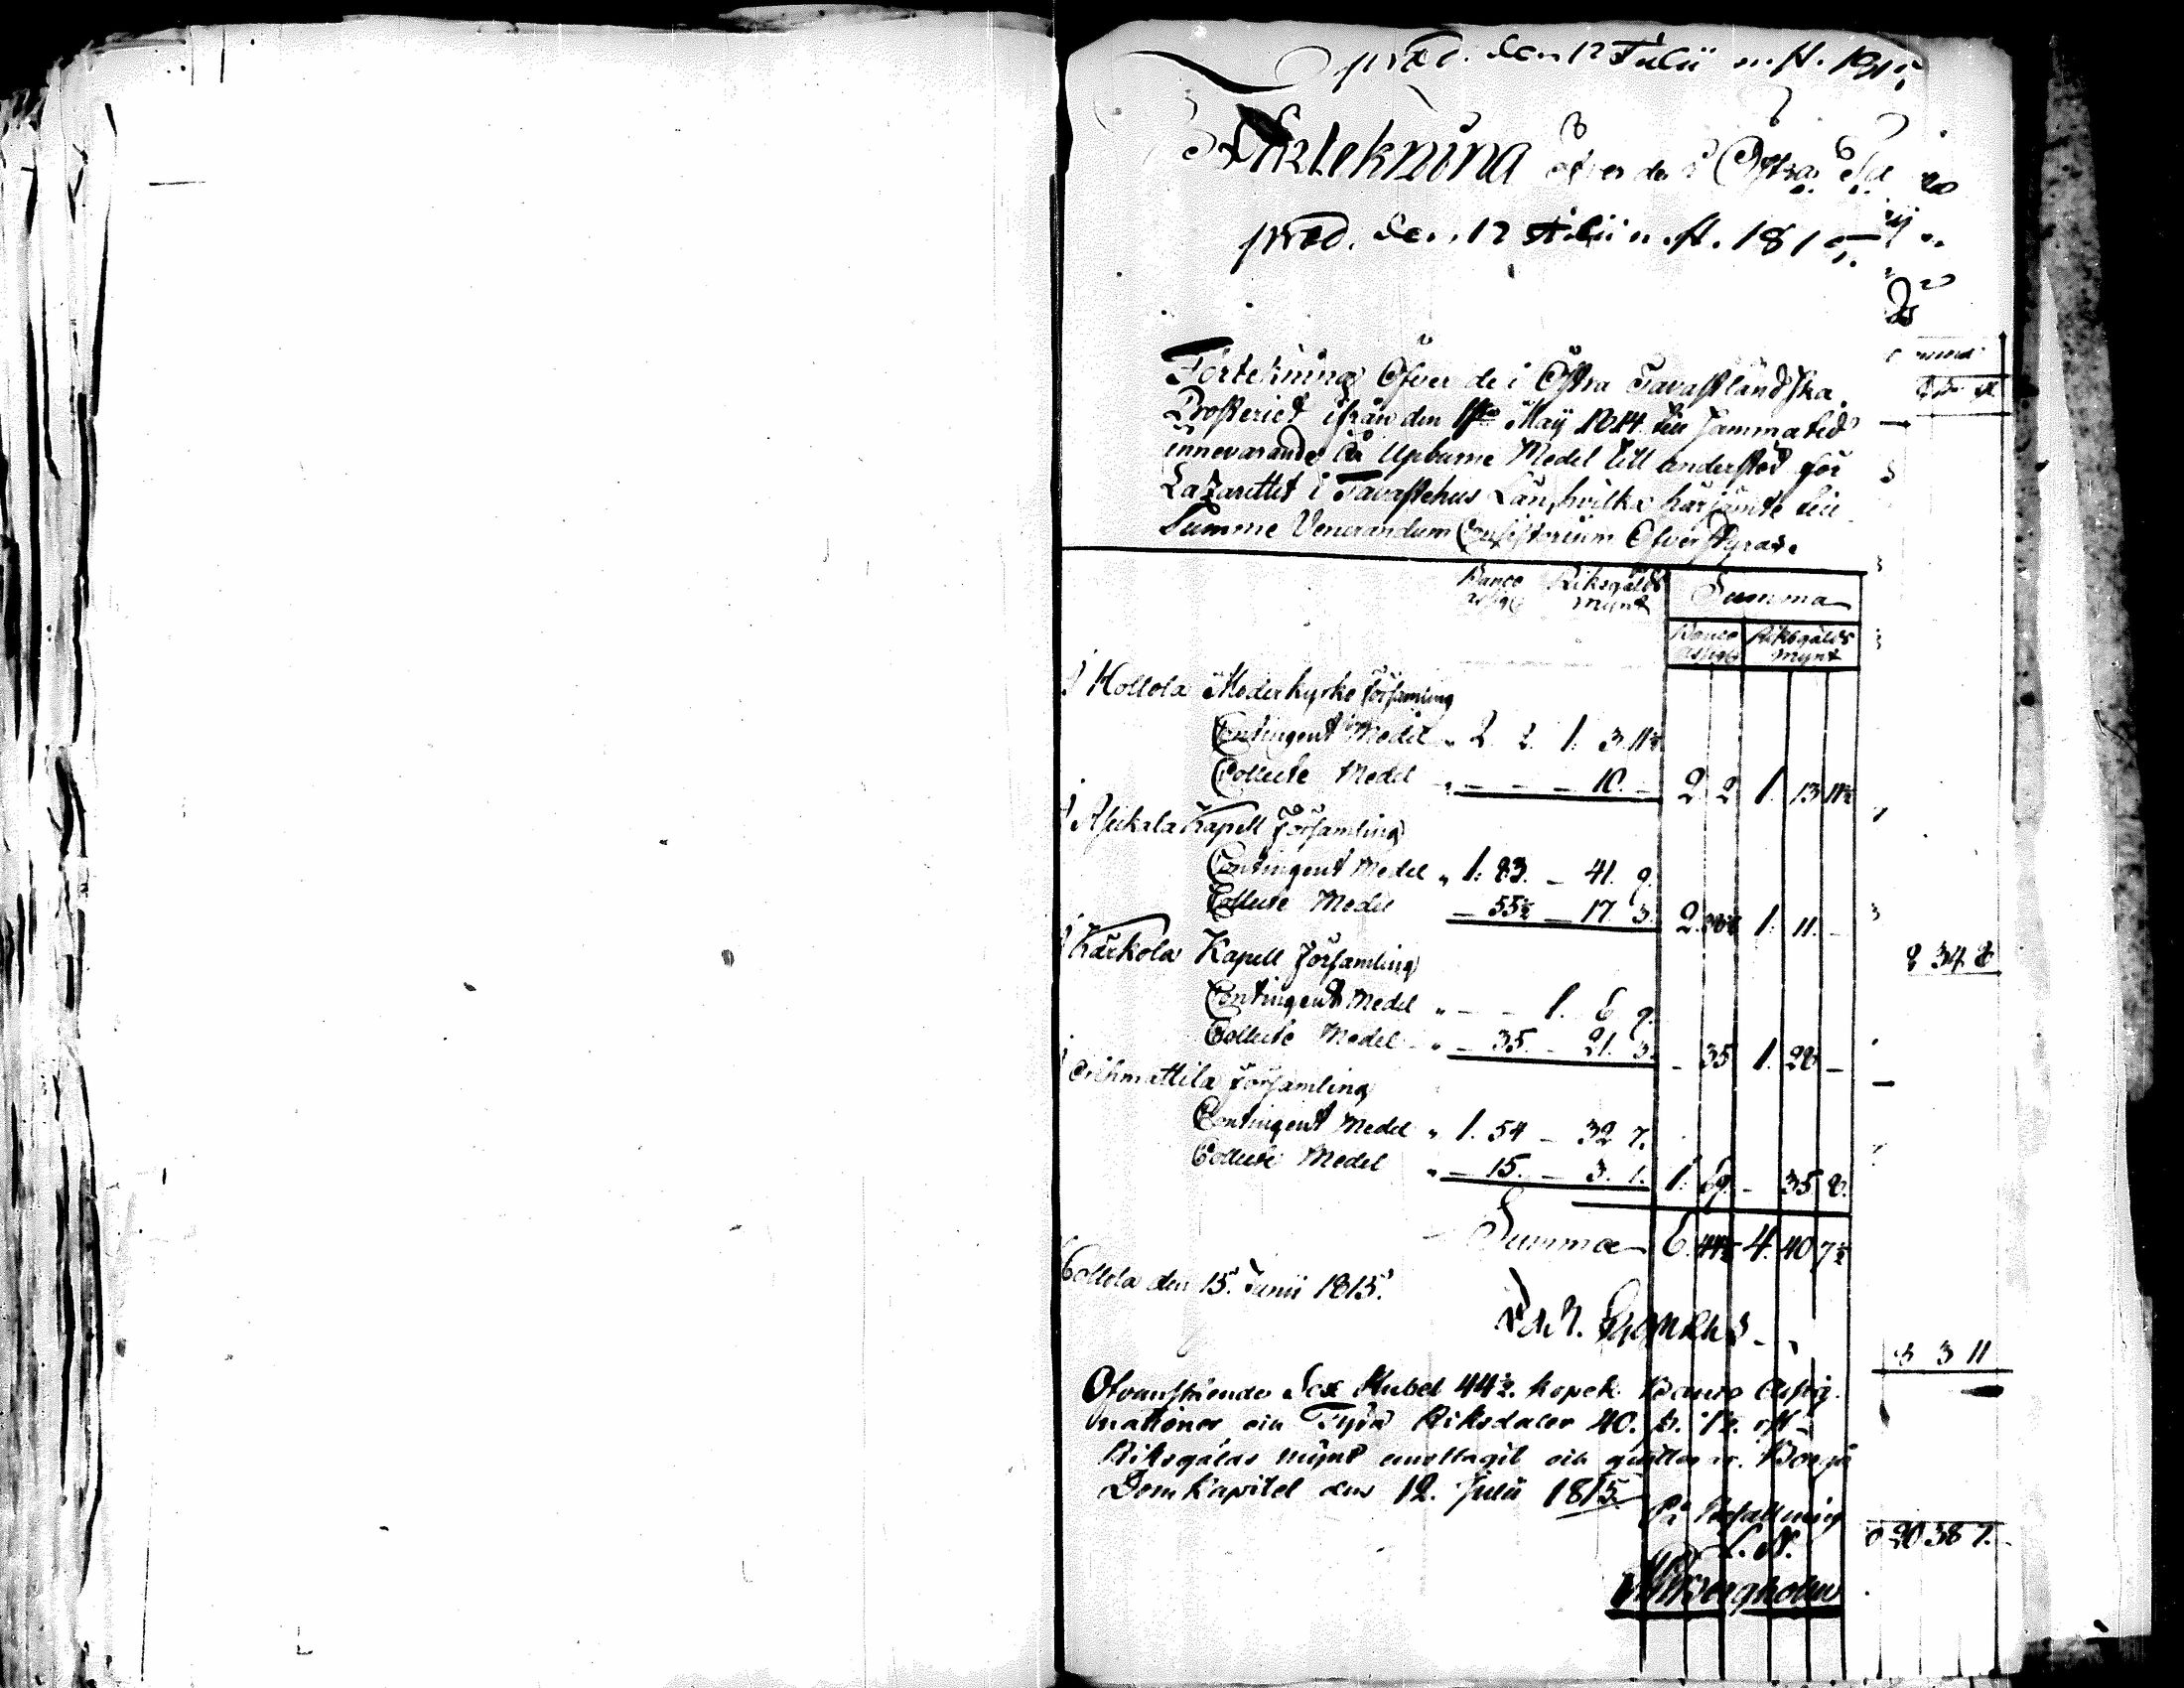 præs. den 12 Julii n. st. 1815.
Förtekning öfver de i Östra
præs. den 12 Julii n. st. 1815.
Förtekning Öfver de i Östra Tavastländska
Prosteriet ifrån den 1sta Maij 1814 till samma tid
innevarande år Upburne Medel till understöd för
Lazarettet i Tavastehus Län, hvilka härjämte till
Summe Venerandum Consistorium Öfverstyras.
Banco assign. Riksgälds mynt Summa
Banco assign. Riksgälds mynt
I Hollola Moderkyrko Församling
Contingent Medel " 2. 2. 1. 3. 11½
Collecte Medel " – – – 10. – 2. 2 1. 13 11½
I Asikala Kapell Församling
Contingent Medel " 1. 83. – 41. 9.
Collecte Medel – 55½ – 17. 3. 2. 38½ 1. 11. –
I Kärkola Kapell Församling
Contingent Medel " – – 1. 6 9.
Collecte Medel " – 35. – 21. 3. – 35 1. 28 –
I Orihmattila Församling
Contingent Medel " 1. 54 – 32 7.
Collecte Medel " – 15. – 3. 1. 1. 69. – 35 8.
Summa 6. 44½ 4. 40 7½
Hollola den 15. Junii 1815.
Ofvanstående Sex Rubel 44½ kopek Banco Assig-
nationer och Fyra Riksdaler 40. s.
Riksgälds mynt emottagit och qvitteras. Borgå
DomKapitel den 12. Julii 1815.
På Befallning
2 34 8
3 3 11
20 38 7.